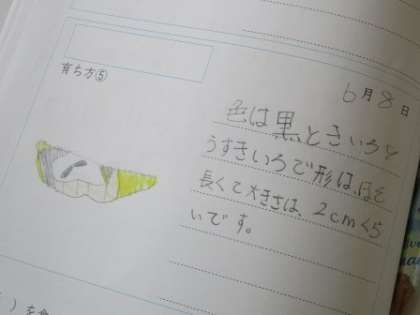 育ち方⑤
6月8日
色は黒ときいろと
うすきいろで形はほそ
長くて大きさは、2cmくら
いです。
)を食